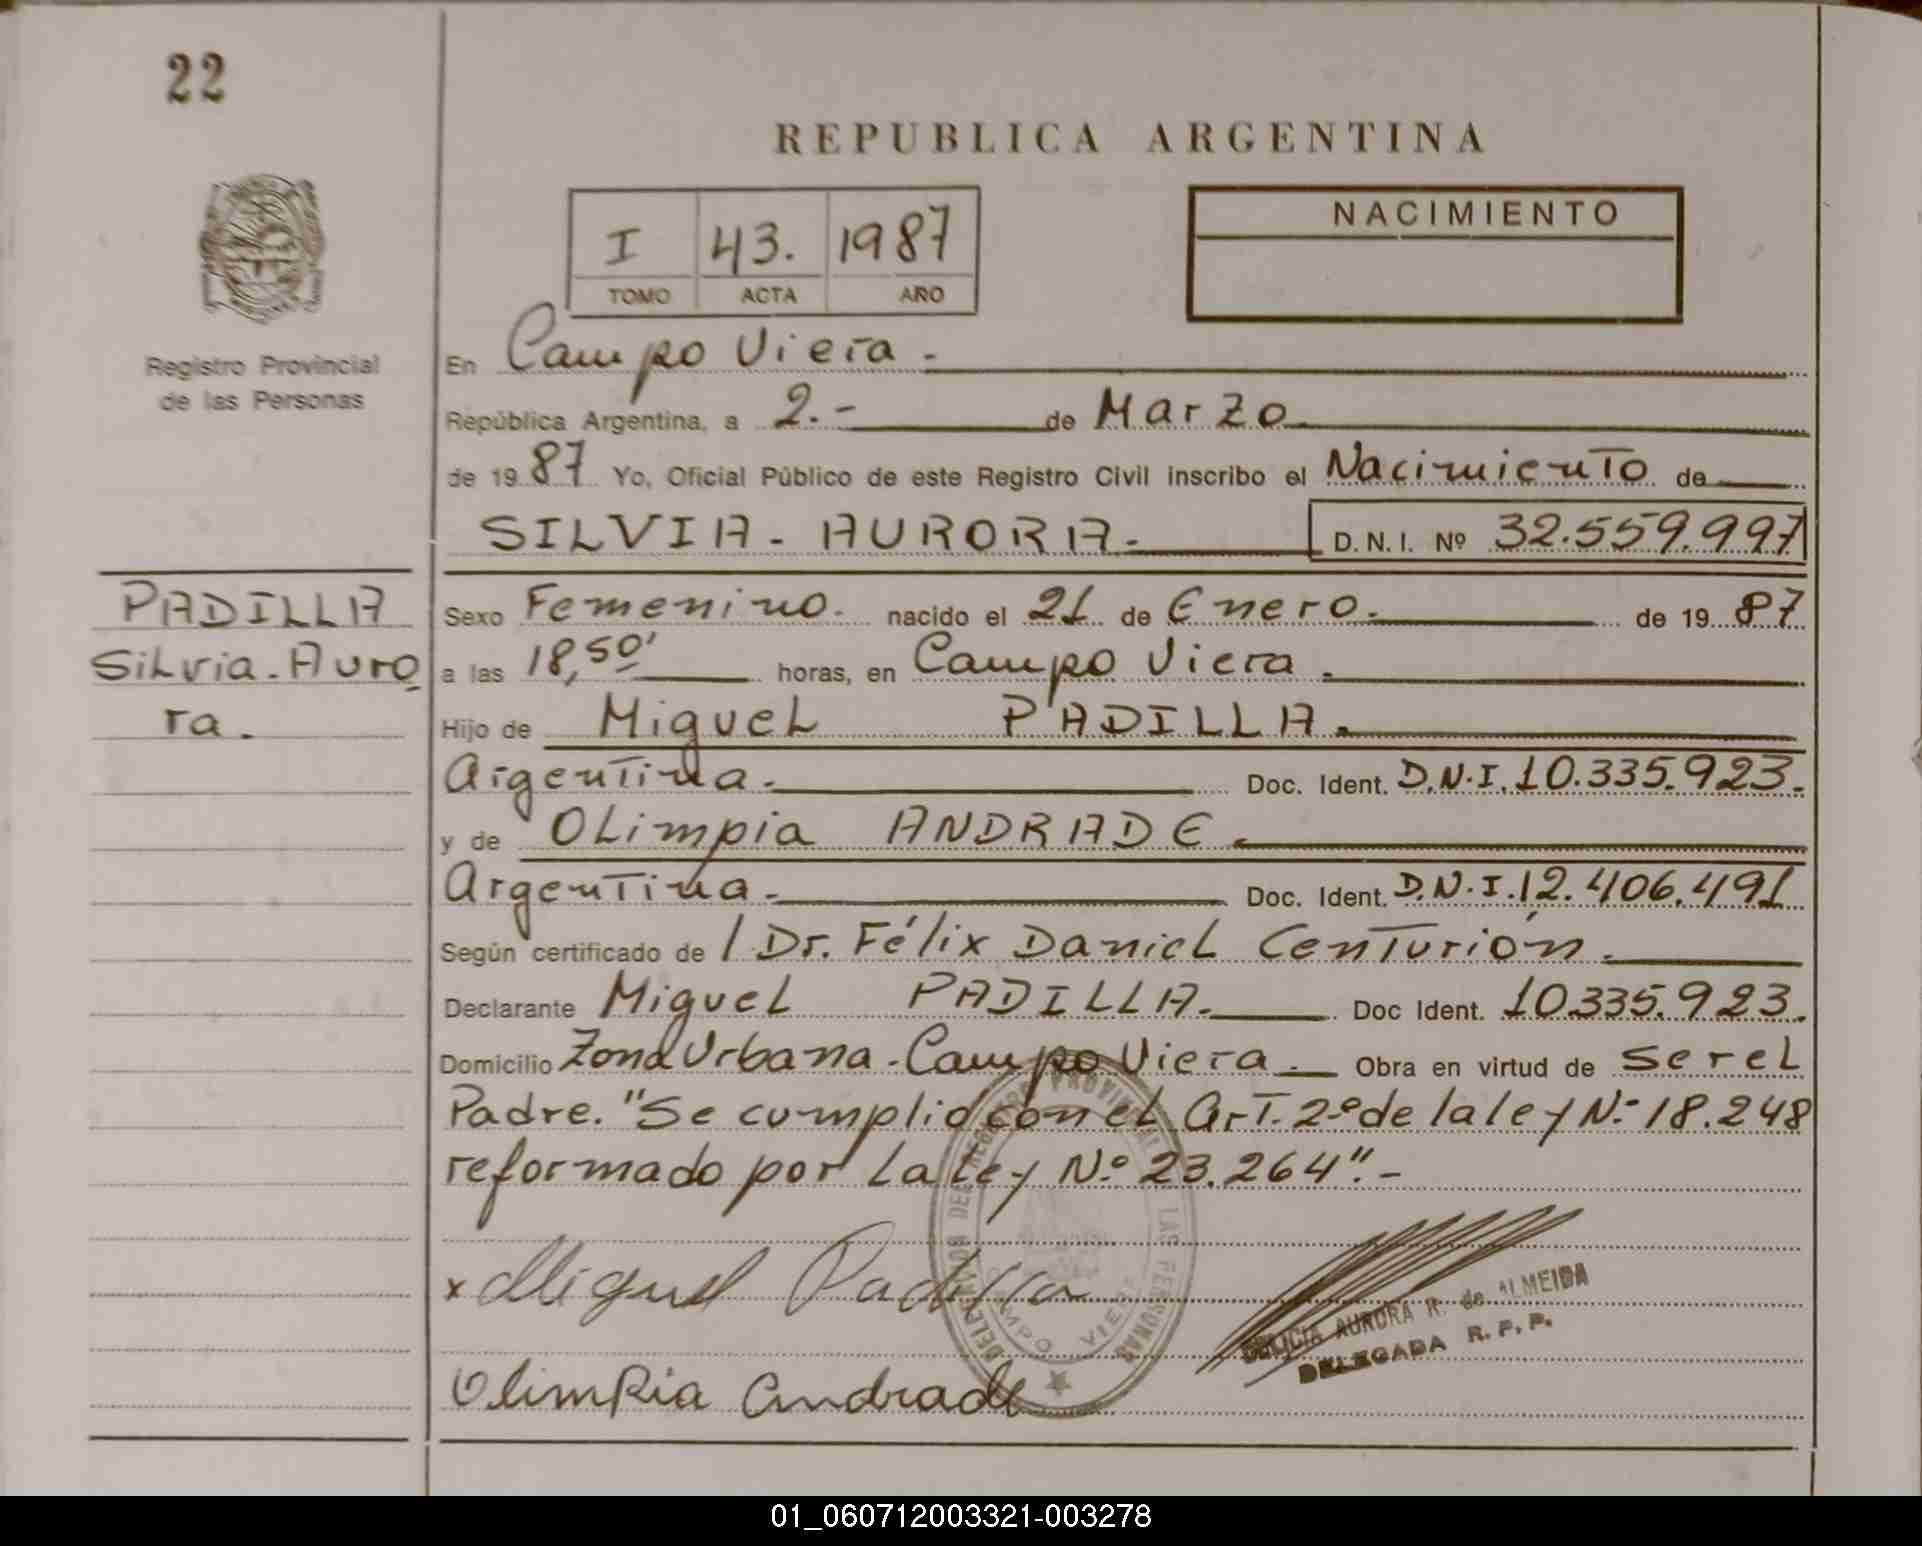 22
REPUBLICA ARGENTINA
I 43. 1987
TOMO ACTA AÑO
NACIMIENTO
Registro Provincial
de las Personas
En Campo Viera.-
República Argentina, a 2.- de Marzo
de 1987 Yo, Oficial Público de este Registro Civil inscribo el Nacimiento de
SILVIA - AURORA.- D.N.I. Nº 32.559.997
PADILLA
Silvia - Auro
ra.
Sexo Femenino. nacido el 21 de Enero. de 1987
a las 18,50' horas, en Campo Viera.
Hijo de Miguel PADILLA.
Argentina. Doc. Ident. D.N.I. 10.335.923.
y de Olimpia ANDRADE.
Argentina. Doc. Ident. D.N.I. 12.406.491
Según certificado de / Dr. Félix Daniel Centurión.
Declarante Miguel PADILLA. Doc Ident. 10.335.923.
Domicilio Zona Urbana - Campo Viera. Obra en virtud de ser el
Padre. "Se cumplió con el Art. 2º de la ley Nº 18.248
reformado por la ley Nº 23.264".-
x Miguel Padilla
Olimpia Andrade
DEL REGISTRO PROVINCIAL DE LAS PERSONAS
CAMPO VIERA
AURORA R. de ALMEIDA
DELEGADA R. P. P.
01_060712003321-003278